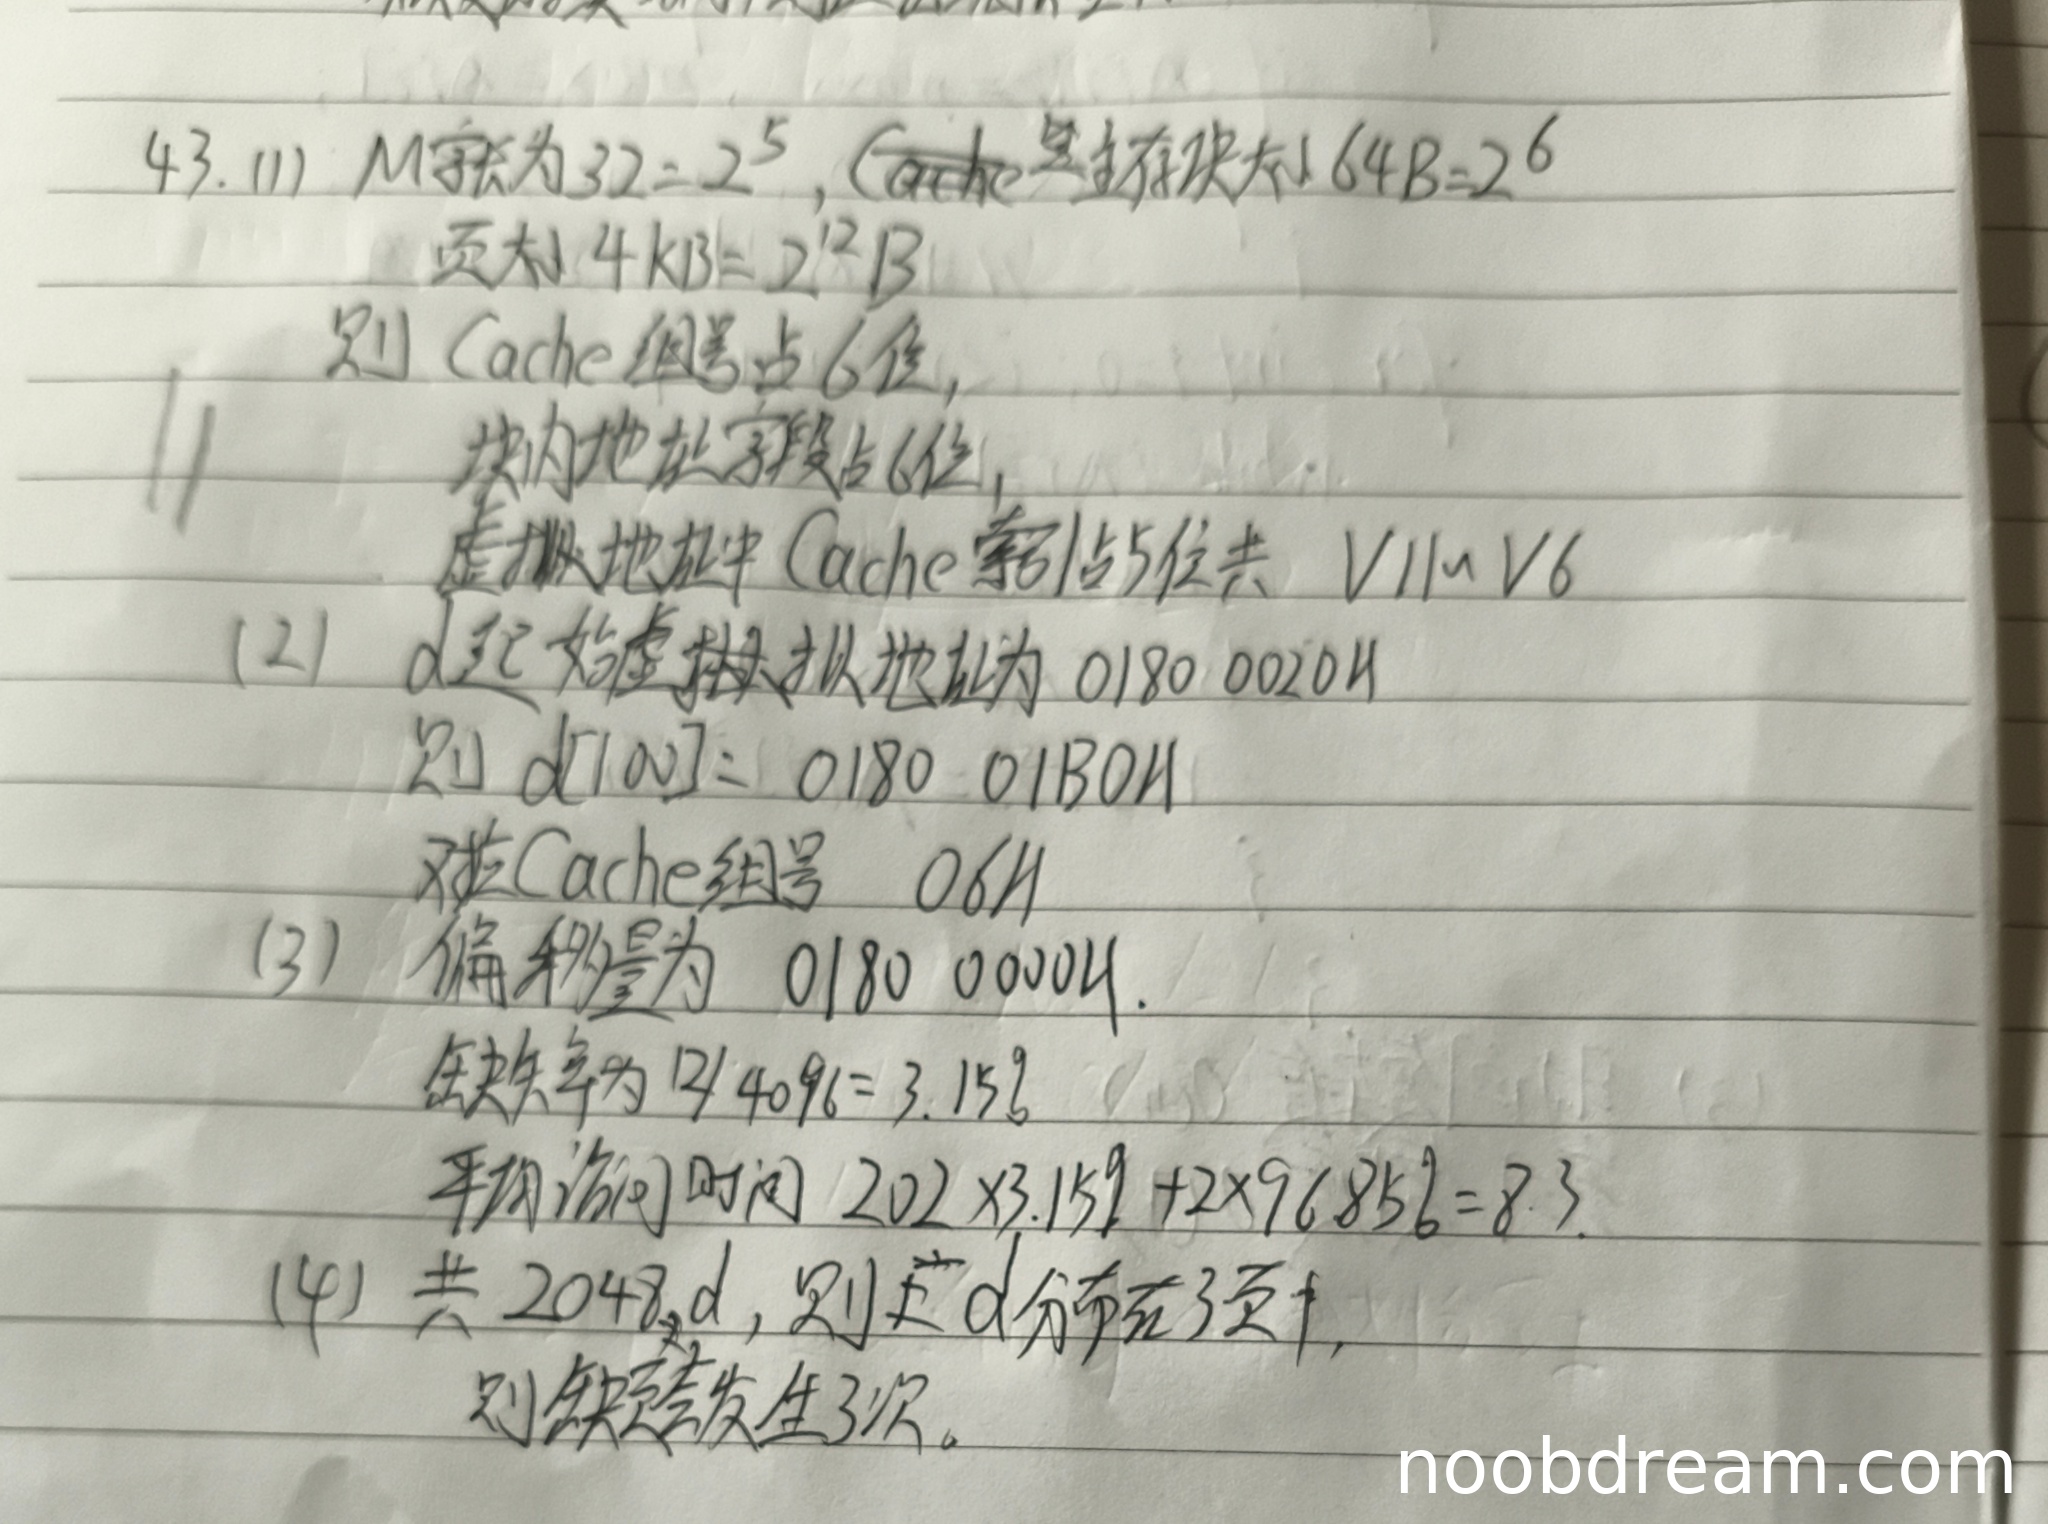 43.(1) M字长为32=2^5, Cache 主存块大小64B=2^6
页大小4KB=2^12B
则 Cache组号占6位,
块内地址字段占6位,
虚拟地址中Cache索引占5位共 V11~V6
(2) d起始虚拟地址为 0180 0020H
则 d[100]= 0180 01B0H
对应Cache组号 06H
(3) 偏移量为 0180 0000H.
缺失率为 129/4096=3.15%
平均访问时间 202×3.15%+2×96.85%=8.3.
(4) 共2048个d, 则 d分布在3页中,
则缺页会发生3次。
noobdream.com